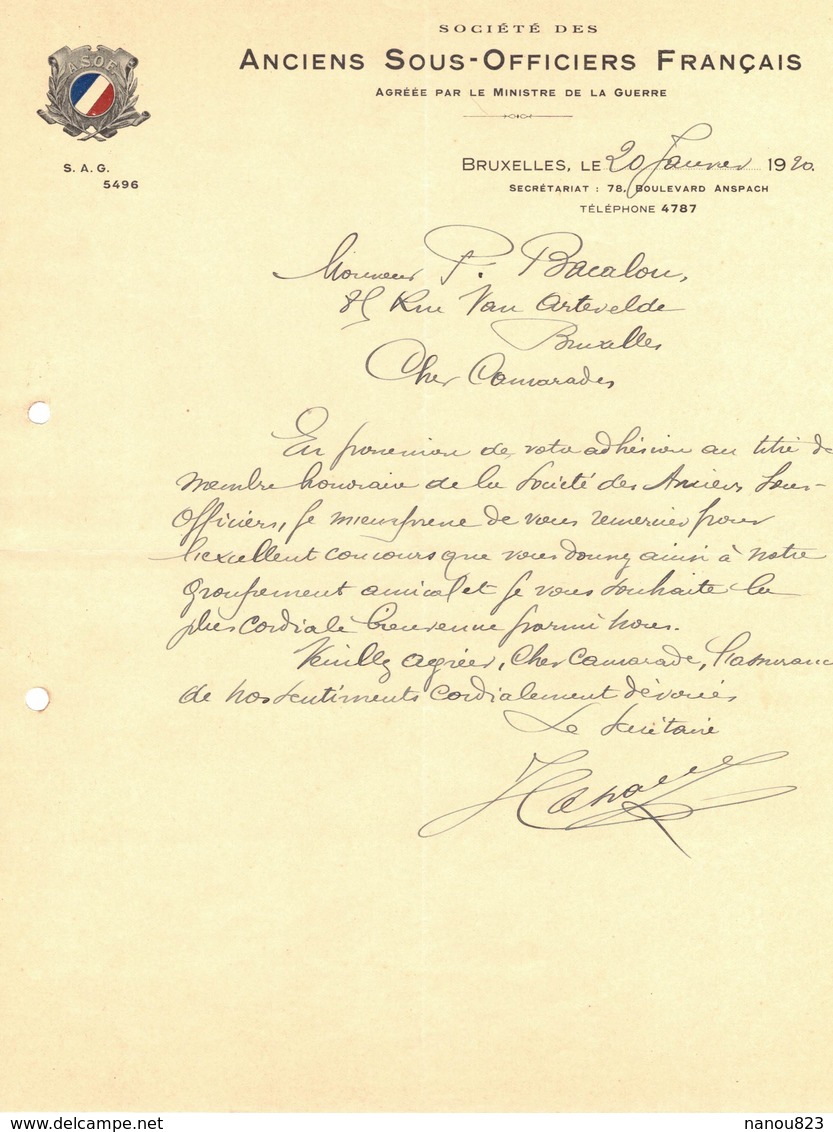 SOCIÉTÉ DES
ANCIENS SOUS-OFFICIERS FRANÇAIS
AGRÉÉE PAR LE MINISTRE DE LA GUERRE
ASOF
S. A. G.
5496
BRUXELLES, LE 20 Janvier 1920.
SECRÉTARIAT : 78, BOULEVARD ANSPACH
TÉLÉPHONE 4787
Monsieur P. Bacalou,
Rue Van Artevelde
Bruxelles
Cher Camarades
En possession de votre adhésion au titre de
membre honoraire de la Société des Anciens Sous-
Officiers, je m'empresse de vous remercier pour
l'excellent concours que vous donnez ainsi à notre
groupement amical et je vous souhaite la
plus cordiale bienvenue parmi nous.
Veuillez agréer, Cher Camarade, l'assurance
de nos sentiments cordialement dévoués
Le Secrétaire
nanou823